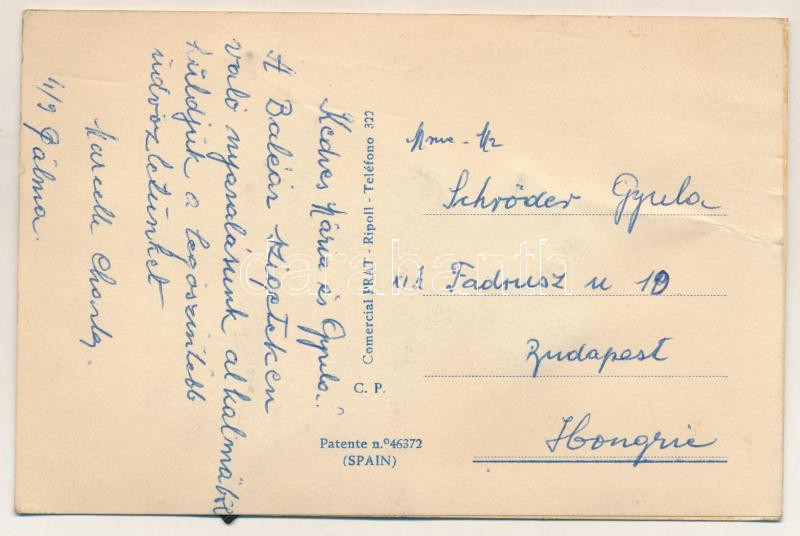 Kedves Mária és Gyula!
A Baleár szigeteken
való nyaralásunk alkalmából
küldjük a legőszintébb
üdvözletünket
Marcelle Charles.
4/9 Pálma.
Comercial PRAT - Ripoll - Teléfono 322
C. P.
Patente n.º46372
(SPAIN)
Mme - Mr
Schröder Gyula
XI Fadrusz u 19
Budapest
Hongrie
darabanth